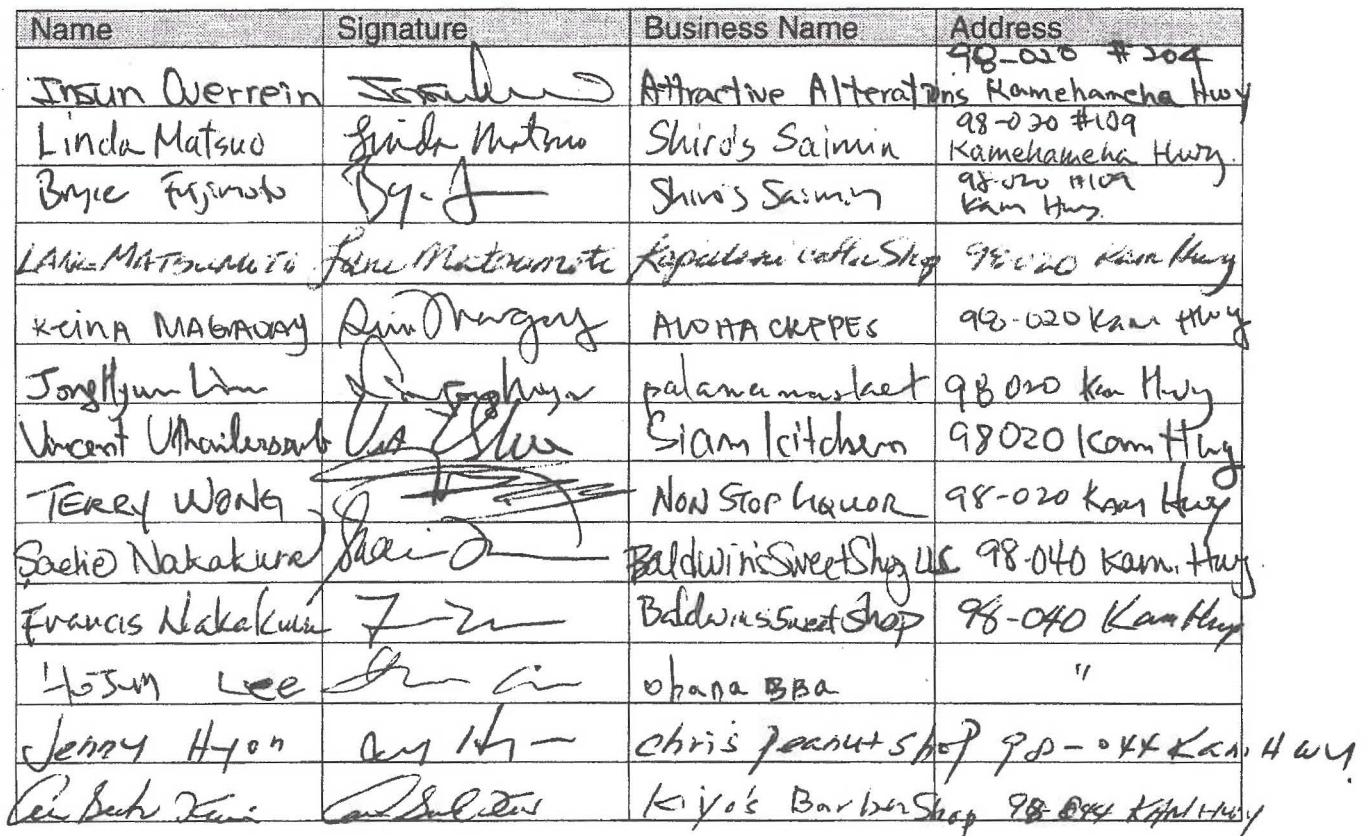 Name Signature Business Name Address
98-020 #204
Insun Overrein Attractive Alterations Kamehameha Hwy
Linda Matsuo Linda Matsuo Shiro's Saimin 98-020 #109
Kamehameha Hwy.
Bryce Fujimoto Shiro's Saimin 98-020 #109
Kam Hwy.
LANE MATSUMOTO Lane Matsumoto Coffee Shop 98-020 Kam Hwy
KeinA MAGAOAY ALOHA CREPPES 98-020 Kam Hwy
JongHyun Lim palama market 98 020 Kam Hwy
Vincent Siam kitchen 98020 Kam Hwy
TERRY WONG NON STOP LIQUOR 98-020 Kam Hwy
Sachie Nakakura Baldwin's Sweet Shop LLC 98-040 Kam. Hwy.
Francis Nakakura Baldwins Sweet Shop 98-040 Kam Hwy
HoJun Lee ohana BBQ "
Jenny Hyon chris peanut shop 98-044 Kam Hwy.
Kiyo's Barber Shop 98-044 KAM Hwy